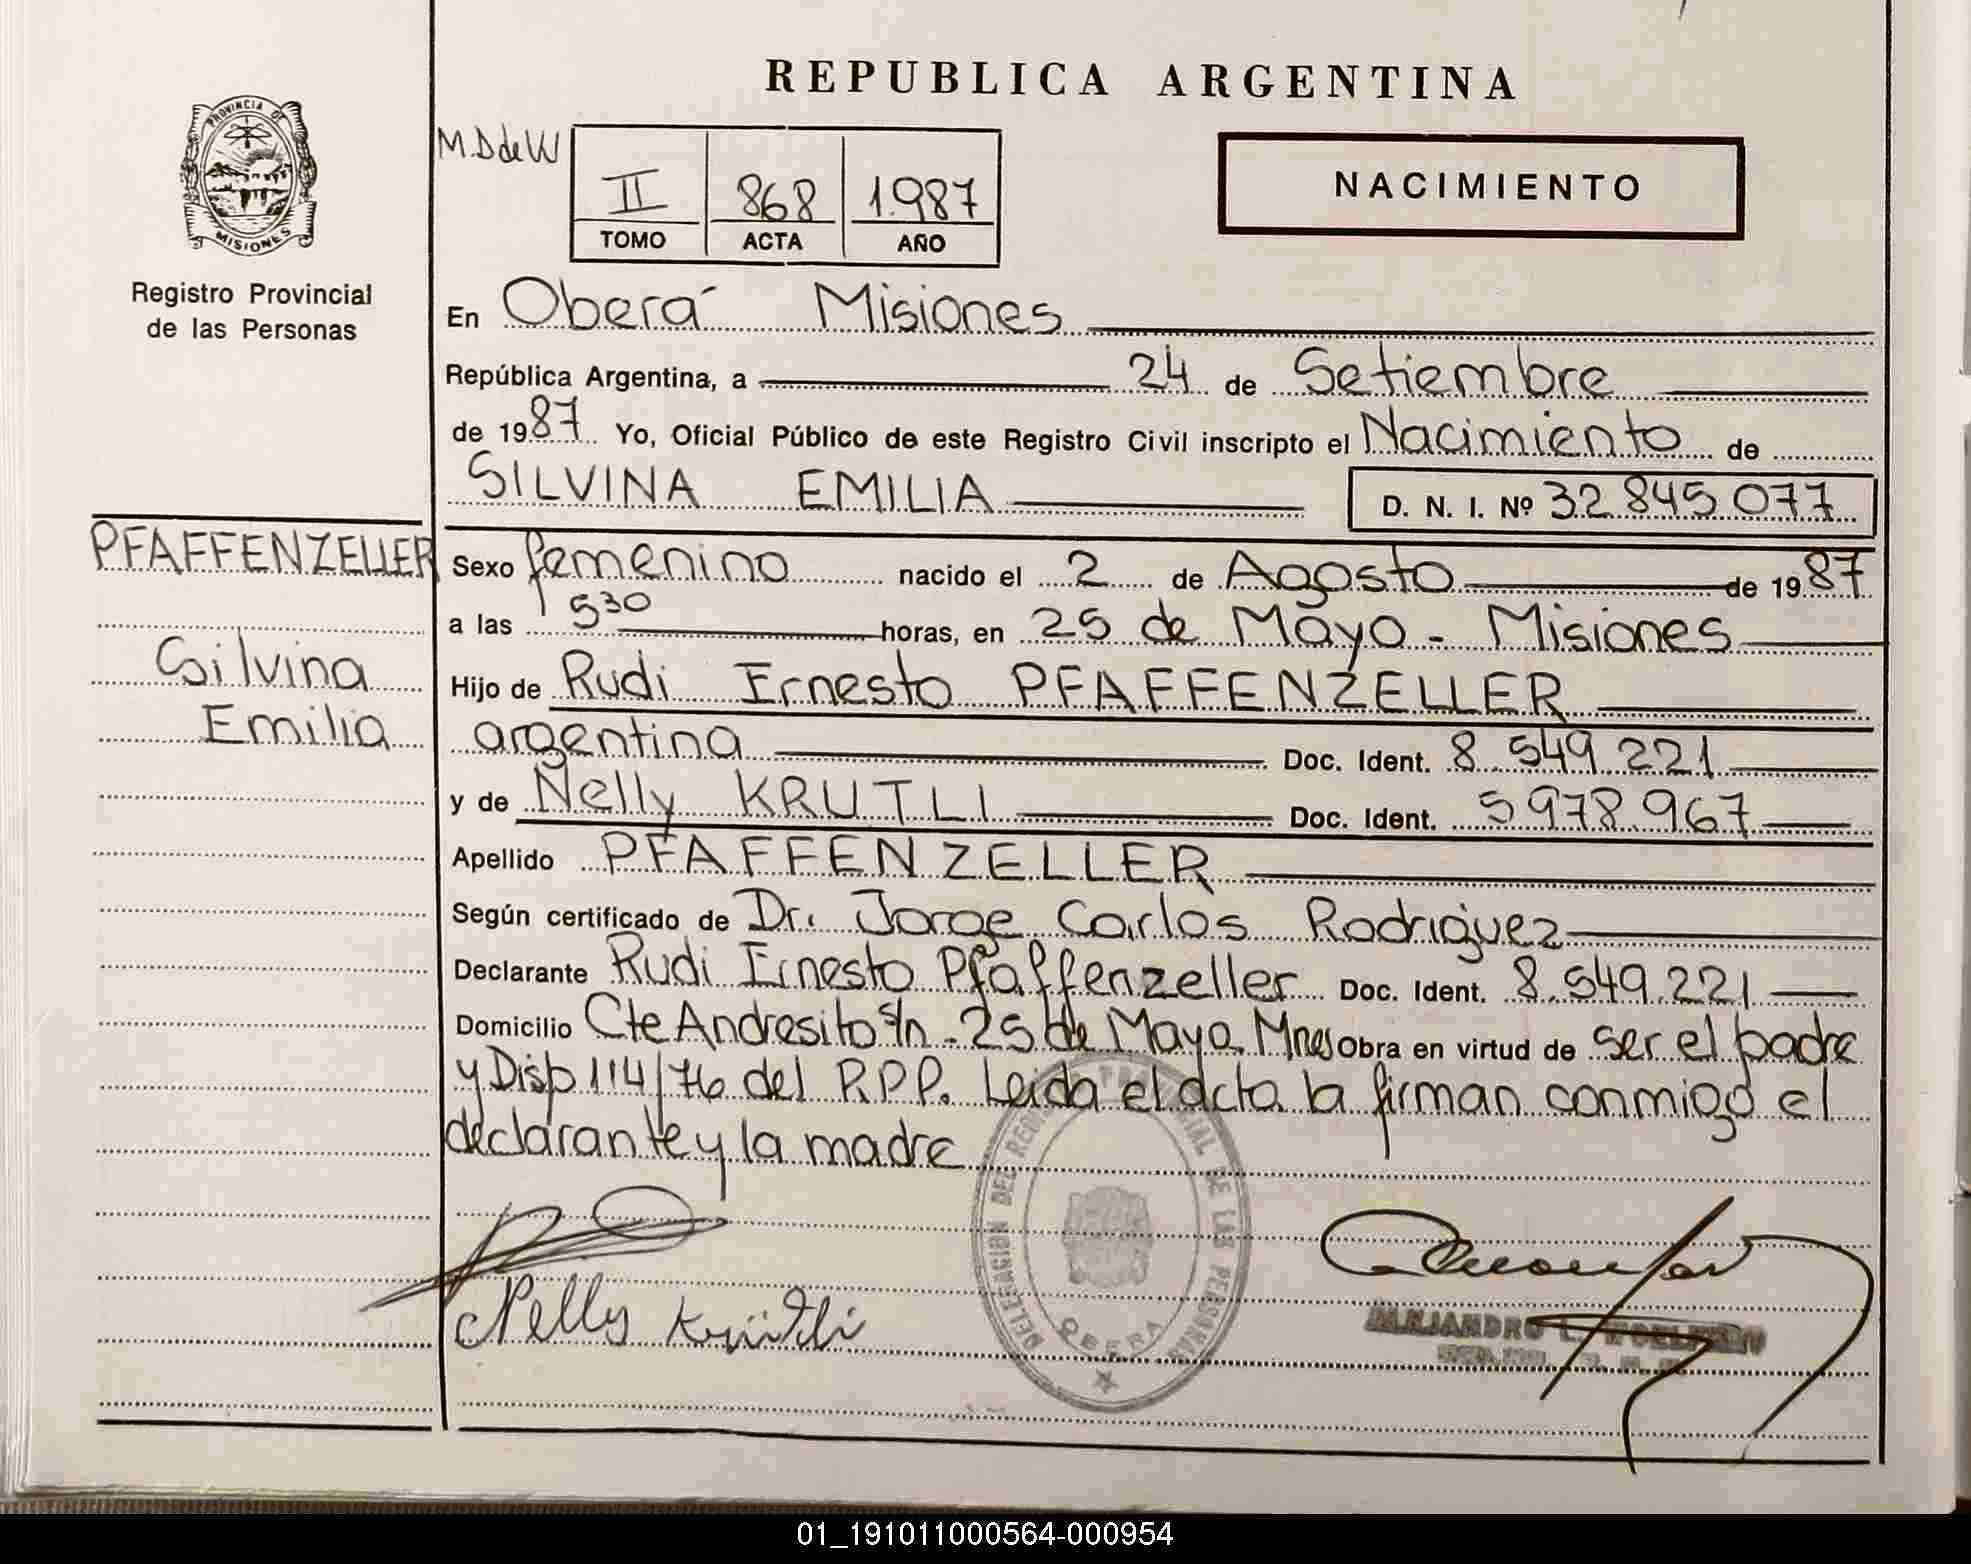 REPUBLICA ARGENTINA
PROVINCIA DE
MISIONES
Registro Provincial
de las Personas
M.D de W
II 868 1.987
TOMO ACTA AÑO
NACIMIENTO
En Oberá Misiones
República Argentina, a 24 de Setiembre
de 1987 Yo, Oficial Público de este Registro Civil inscripto el Nacimiento de
SILVINA EMILIA
D. N. I. Nº 32.845.077
PFAFFENZELLER
Silvina
Emilia
Sexo femenino nacido el 2 de Agosto de 1987
a las 530 horas, en 25 de Mayo - Misiones
Hijo de Rudi Ernesto PFAFFENZELLER
argentina Doc. Ident. 8.549.221
y de Nelly KRUTLI Doc. Ident. 5.978.967
Apellido PFAFFENZELLER
Según certificado de Dr. Jorge Carlos Rodriguez
Declarante Rudi Ernesto Pfaffenzeller Doc. Ident. 8.549.221
Domicilio Cte Andresito s/n - 25 de Mayo Mnes Obra en virtud de ser el padre
y Disp 114/76 del R.P.P. Leida el acta la firman conmigo el
declarante y la madre
Nelly Krütli
DELEGACION DEL REGISTRO PROVINCIAL DE LAS PERSONAS
OBERA
ALEJANDRO L.
01_191011000564-000954